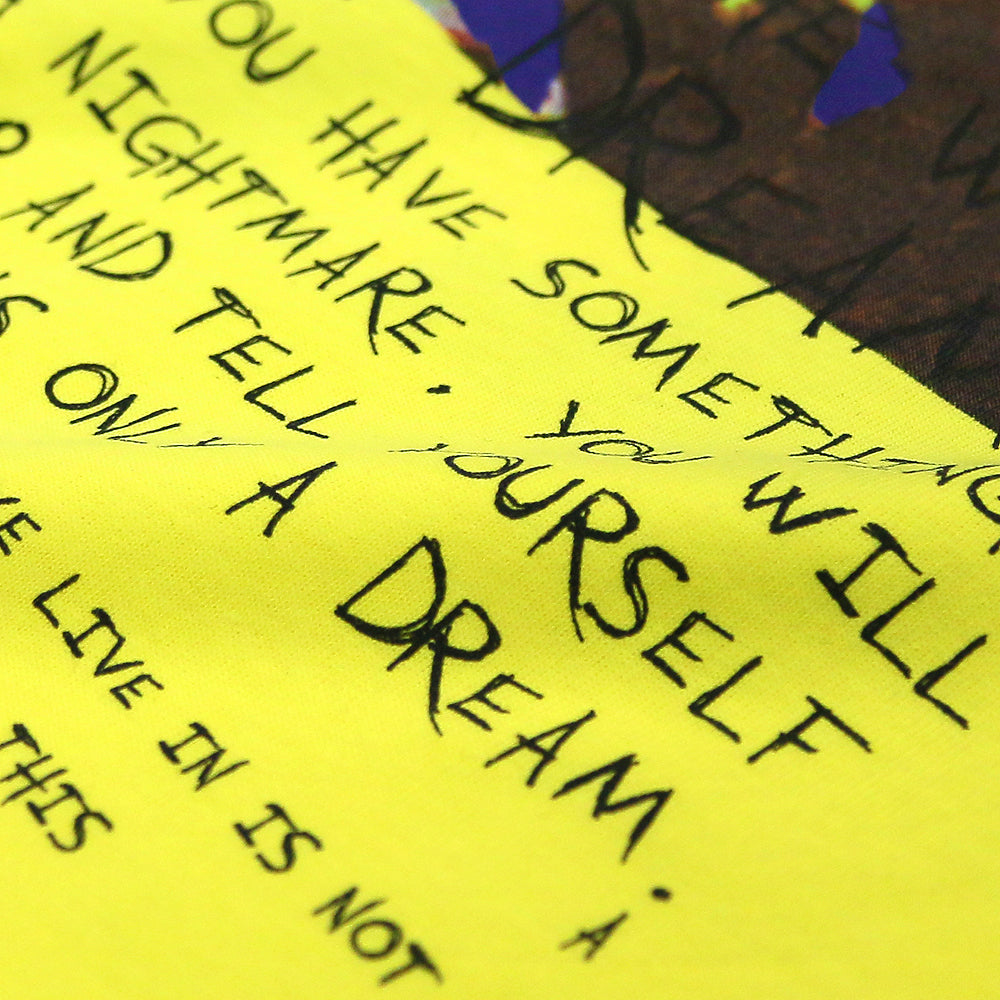 DREAM
YOU HAVE SOMETHING
NIGHTMARE. YOU WILL
AND TELL YOURSELF
ONLY A DREAM. A
LIVE IN IS NOT
THIS